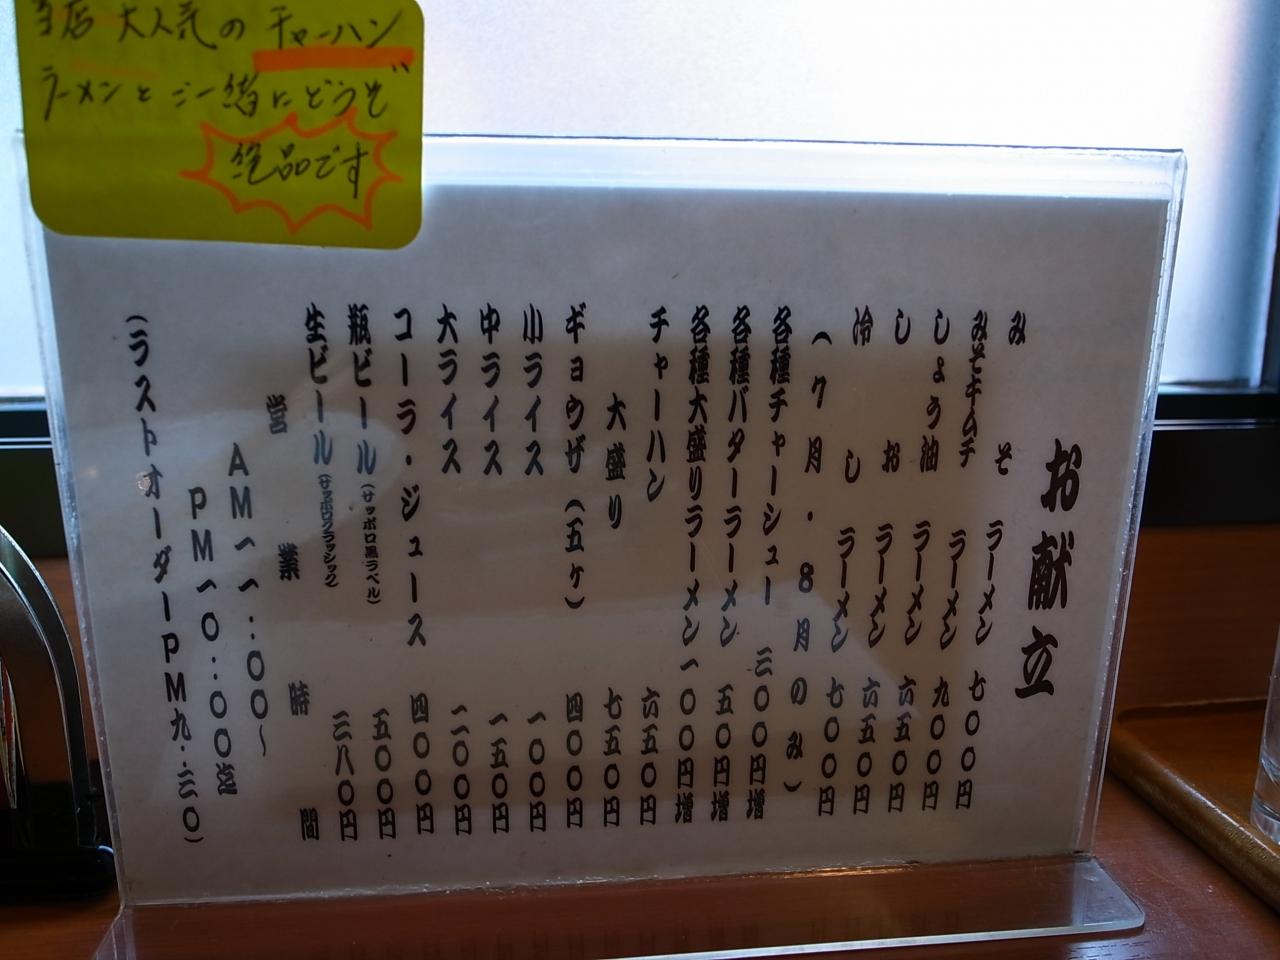 当店 大人気の チャーハン
ラーメンと ご一緒にどうぞ
絶品です
お献立
みそ ラーメン 七〇〇円
みそキムチ ラーメン 九〇〇円
しょう油 ラーメン 六五〇円
しお ラーメン 六五〇円
冷し ラーメン 七〇〇円
(7月・8月のみ)
各種チャーシュー 三〇〇円増
各種バターラーメン 五〇円増
各種大盛りラーメン 一〇〇円増
チャーハン 六五〇円
大盛り 七五〇円
ギョウザ(五ヶ) 四〇〇円
小ライス 一〇〇円
中ライス 一五〇円
大ライス 二〇〇円
コーラ・ジュース 四〇〇円
瓶ビール(サッポロ黒ラベル) 五〇〇円
生ビール(サッポロクラッシック) 三八〇円
営業時間
AM一一:〇〇~
PM一〇:〇〇迄
(ラストオーダーPM九:三〇)